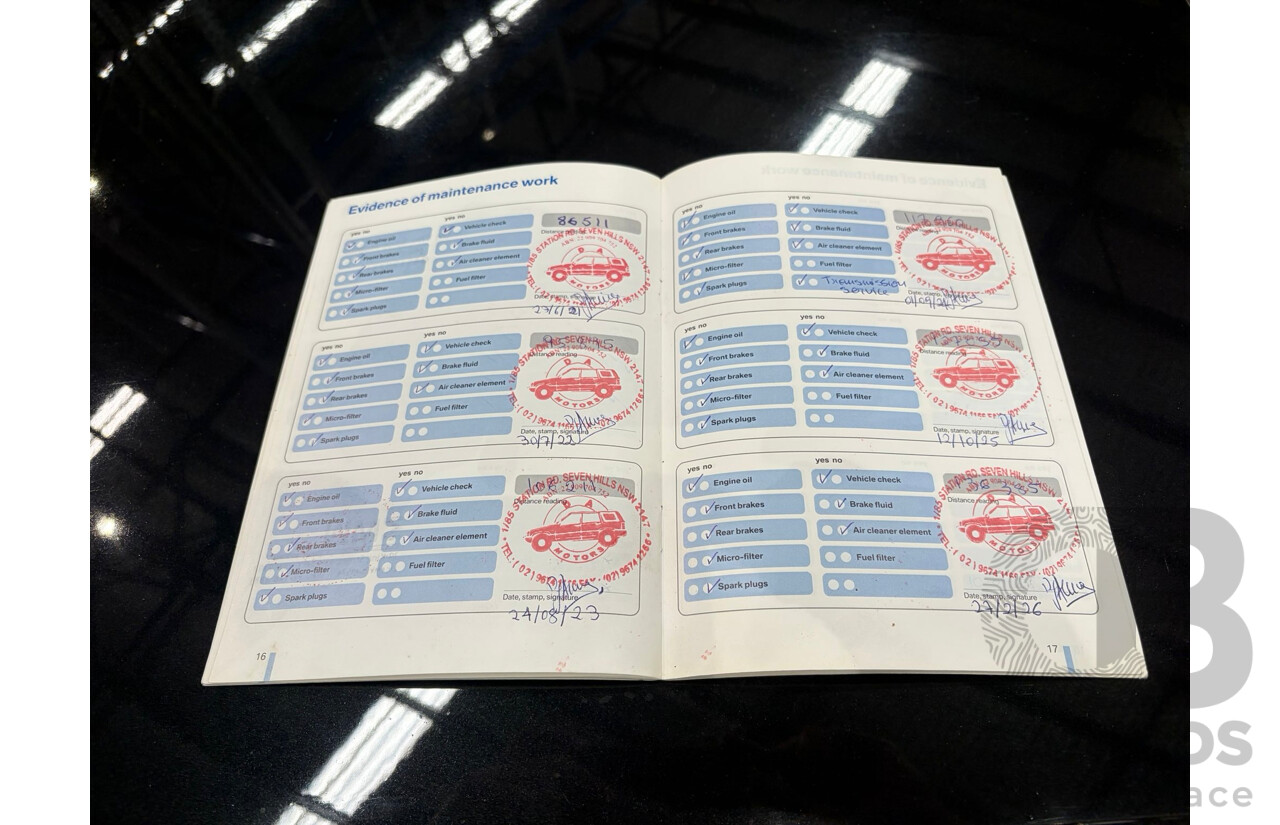 Evidence of maintenance work
yes no
yes no
86511
Engine oil
Vehicle check
Front brakes
Brake fluid
Rear brakes
Air cleaner element
Micro-filter
Fuel filter
Spark plugs
1/85 STATION RD, SEVEN HILLS NSW 2147
D A
MOTORS
27/6/21
yes no
yes no
Engine oil
Vehicle check
Distance reading
Front brakes
Brake fluid
Rear brakes
Air cleaner element
Micro-filter
Fuel filter
Spark plugs
1/85 STATION RD, SEVEN HILLS NSW 2147
D A
MOTORS
Date, stamp, signature
30/7/22
yes no
yes no
Engine oil
Vehicle check
Distance reading
Front brakes
Brake fluid
Rear brakes
Air cleaner element
Micro-filter
Fuel filter
Spark plugs
1/85 STATION RD, SEVEN HILLS NSW 2147
D A
MOTORS
Date, stamp, signature
24/08/23
16
yes no
yes no
Engine oil
Vehicle check
Front brakes
Brake fluid
Rear brakes
Air cleaner element
Micro-filter
Fuel filter
Spark plugs
Transmission
Service
D A
MOTORS
Date, stamp, signature
yes no
yes no
Engine oil
Vehicle check
Distance reading
Front brakes
Brake fluid
Rear brakes
Air cleaner element
Micro-filter
Fuel filter
Spark plugs
STATION RD, SEVEN HILLS NSW 2147
D A
MOTORS
Date, stamp, signature
12/10/25
yes no
yes no
Engine oil
Vehicle check
Distance reading
Front brakes
Brake fluid
Rear brakes
Air cleaner element
Micro-filter
Fuel filter
Spark plugs
STATION RD, SEVEN HILLS NSW
D A
MOTORS
Date, stamp, signature
27/2/26
17
os
ace